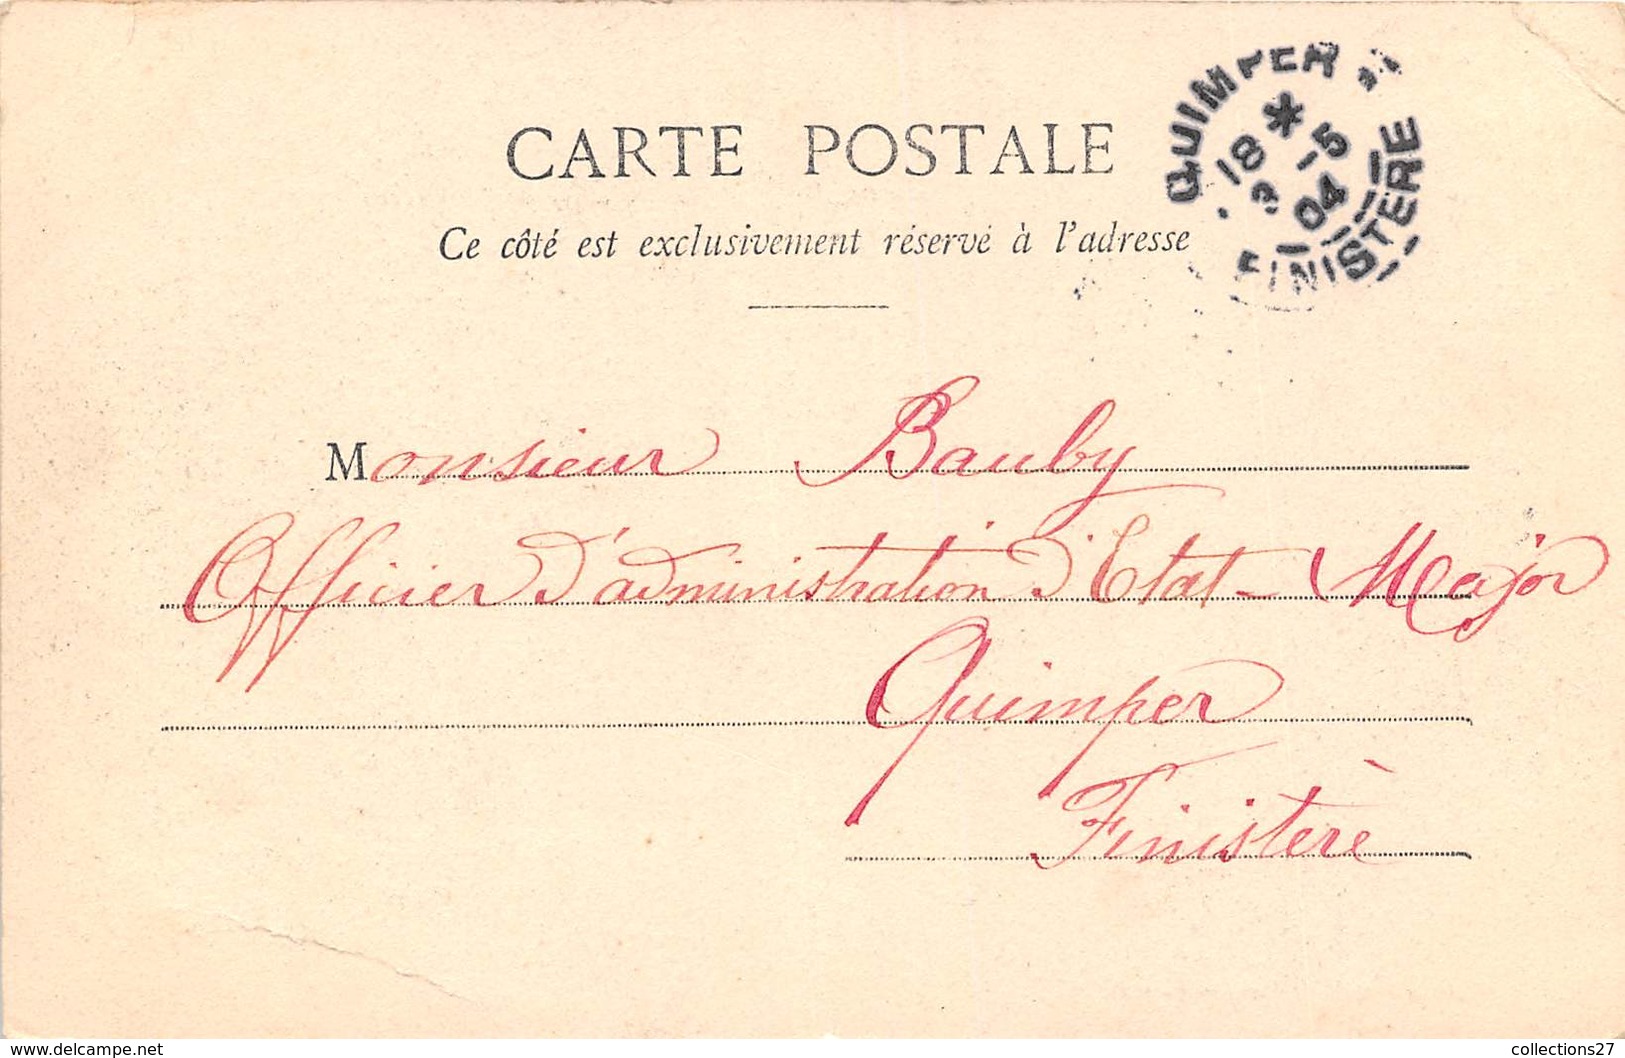 CARTE POSTALE
Ce côté est exclusivement réservé à l'adresse
QUIMPER
18 * 3 -5
04
FINISTERE
Monsieur Bauby
Officier d'administration d'Etat-Major
Quimper
Finistère
www.delcampe.net
collections27